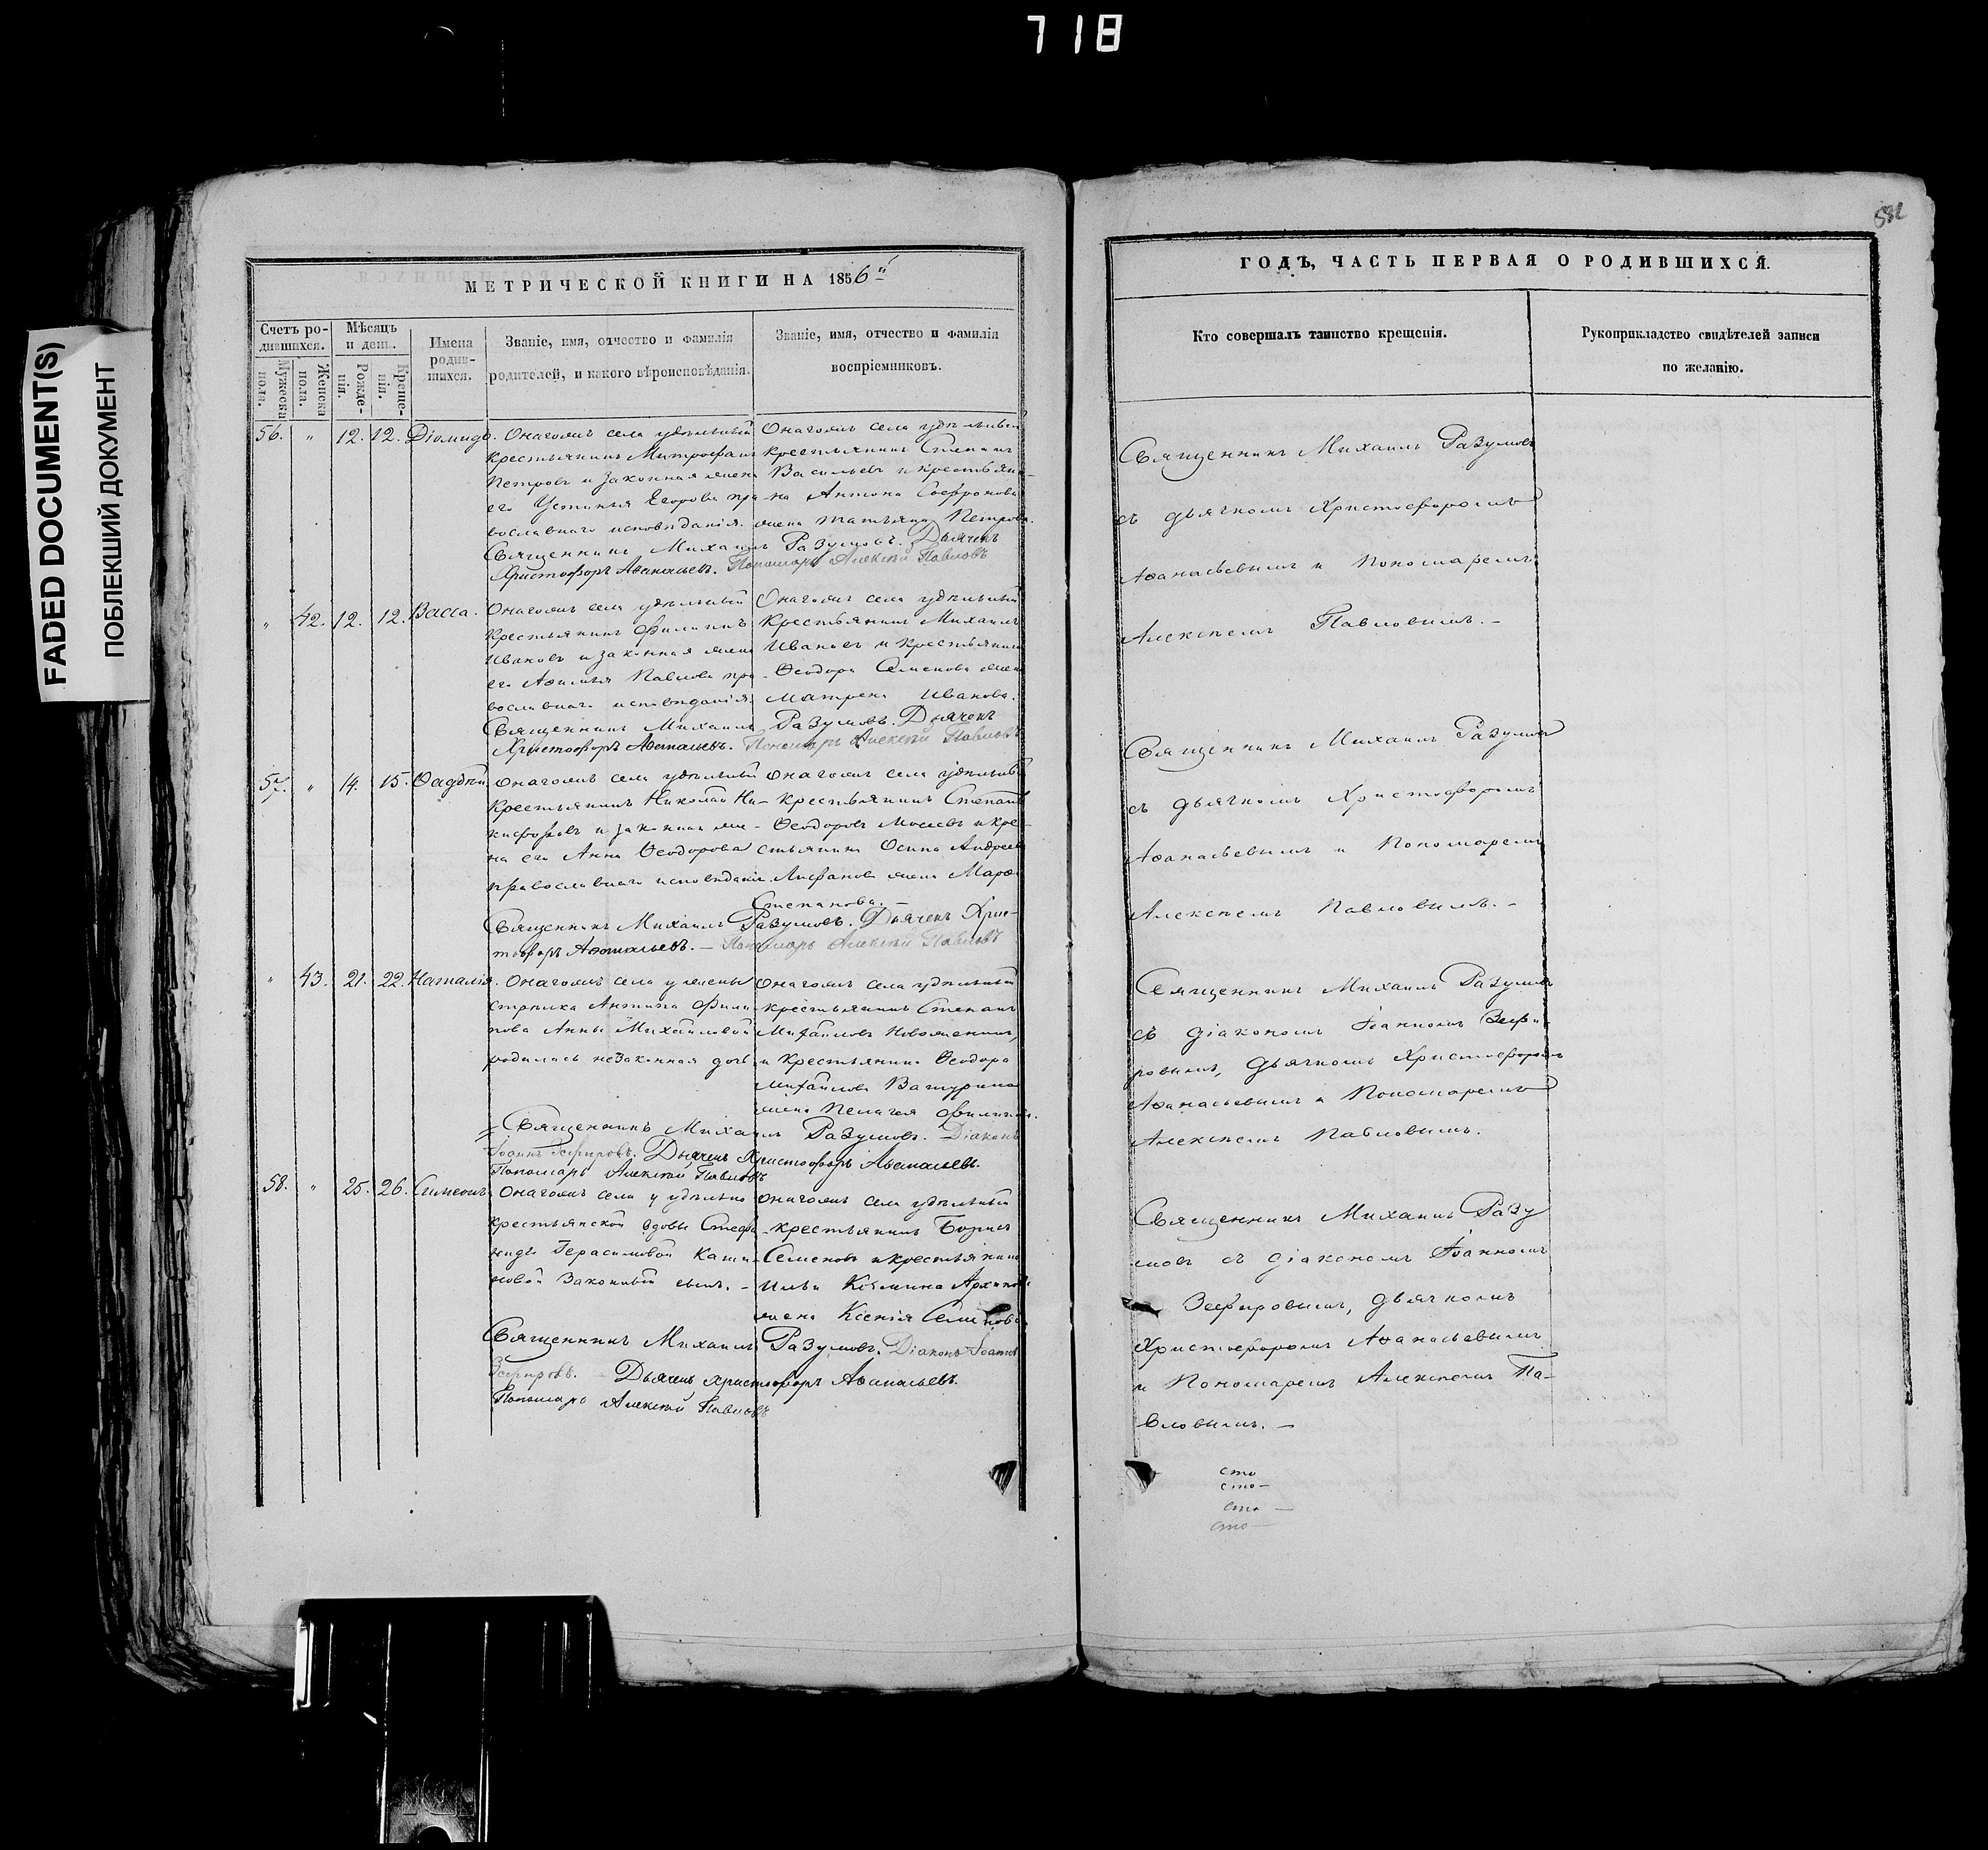 718
FADED DOCUMENT(S)
ПОБЛЕКШИЙ ДОКУМЕНТ
МЕТРИЧЕСКОЙ КНИГИ НА 1856й
Счетъ ро-
дившихся.
Мужеска
пола.
Женска
пола.
Мѣсяцъ
и день.
Рожде-
нія.
Креще-
нія.
Имена
родив-
шихся.
Званіе, имя, отчество и фамилія
родителей, и какого вѣроисповѣданія.
Званіе, имя, отчество и фамилія
воспріемниковъ.
56. " 12. 12. Діомидъ.
Онагожъ села удѣльный
крестьянинъ Митрофанъ
Петровъ и законная жена
его Устинья Егорова пра-
вославнаго исповѣданія.
Онагожъ села удѣльный
крестьянинъ Степанъ
Васильевъ и крестьяни-
на Антона Софронова
жена Татьяна Петрова.
Священникъ Михаилъ Разумовъ. Дьячекъ
Христофоръ Аѳанасьевъ. Пономарь Алексѣй Павловъ
" 42. 12. 12. Васса.
Онагожъ села удѣльный
крестьянинъ Филиппъ
Ивановъ и законная жена
его Аѳимья Павлова пра-
вославнаго исповѣданія.
Онагожъ села удѣльный
крестьянинъ Михаилъ
Ивановъ и крестьянина
Ѳеодора Семенова жена
Матрена Иванова.
Священникъ Михаилъ Разумовъ. Дьячекъ
Христофоръ Аѳанасьевъ. Пономарь Алексѣй Павловъ
57. " 14. 15. Ѳаддѣй
Онагожъ села удѣльный
крестьянинъ Николай Ни-
кифоровъ и законная же-
на его Анна Ѳеодорова
православнаго исповѣданія.
Онагожъ села удѣльный
крестьянинъ Степанъ
Ѳеодоровъ и кре-
стьянина Осипа Андреева
жена Марѳа
Степанова. -
Священникъ Михаилъ Разумовъ. Дьячекъ Хрис-
тофоръ Аѳанасьевъ. - Пономарь Алексѣй Павловъ
" 43. 21. 22. Наталія.
Онагожъ села у жены
стрѣлка Антипа Фили-
пова Анны Михайловой
родилась незаконная дочь
Онагожъ села удѣльный
крестьянинъ Степанъ
Михайловъ
и крестьянина Ѳеодора
Михайлова
жена Пелагея
Священникъ Михаилъ Разумовъ. Діаконъ
Іоаннъ Зефировъ. Дьячекъ Христофоръ Аѳанасьевъ.
Пономарь Алексѣй Павловъ
58. " 25. 26. Симеонъ
Онагожъ села у удѣльно
крестьянской вдовы Степа-
ниды Герасимовой
законный сынъ. -
Онагожъ села удѣльный
крестьянинъ Борисъ
Семеновъ и крестьянина
Ильи Козмина
жена Ксенія Семенова
Священникъ Михаилъ Разумовъ. Діаконъ Іоаннъ
Зефировъ. Дьячекъ Христофоръ Аѳанасьевъ.
Пономарь Алексѣй Павловъ
ГОДЪ, ЧАСТЬ ПЕРВАЯ О РОДИВШИХСЯ.
Кто совершалъ таинство крещенія.
Рукоприкладство свидѣтелей записи
по желанію.
Священникъ Михаилъ Разумовъ
съ дьячкомъ Христофоромъ
Аѳанасьевымъ и Пономаремъ
Алексѣемъ Павловымъ. -
Священникъ Михаилъ Разумовъ
съ дьячкомъ Христофоромъ
Аѳанасьевымъ и Пономаремъ
Алексѣемъ Павловымъ. -
Священникъ Михаилъ Разумовъ
съ діакономъ Іоанномъ Зефи-
ровымъ, дьячкомъ Христофоромъ
Аѳанасьевымъ и Пономаремъ
Алексѣемъ Павловымъ.
Священникъ Михаилъ Разу
мовъ съ діакономъ Іоанномъ
Зефировымъ, дьячкомъ
Христофоромъ Аѳанасьевымъ
и Пономаремъ Алексѣемъ Па-
вловымъ. -
сто
сто -
сто -
сто -